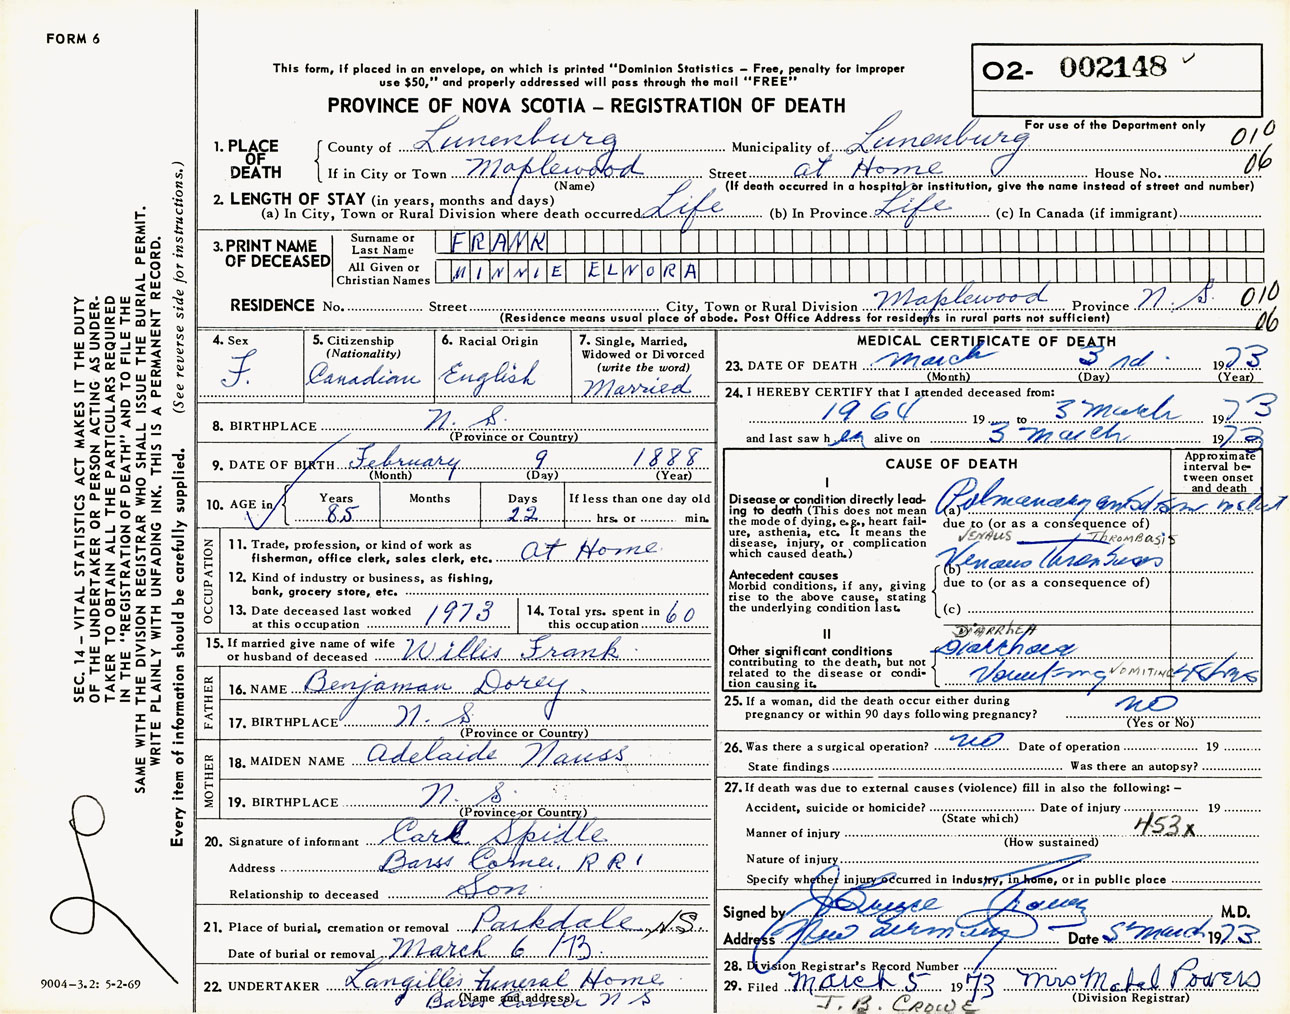 FORM 6
This form, if placed in an envelope, on which is printed "Dominion Statistics – Free, penalty for improper
use $50," and properly addressed will pass through the mail "FREE"
02- 002148
PROVINCE OF NOVA SCOTIA – REGISTRATION OF DEATH
For use of the Department only
1. PLACE OF DEATH County of Lunenburg Municipality of Lunenburg 010
If in City or Town Maplewood Street at Home House No. 06
(Name) (If death occurred in a hospital or institution, give the name instead of street and number)
2. LENGTH OF STAY (in years, months and days)
(a) In City, Town or Rural Division where death occurred Life (b) In Province Life (c) In Canada (if immigrant)
3. PRINT NAME OF DECEASED
Surname or Last Name FRANK
All Given or Christian Names MINNIE ELNORA
RESIDENCE No. Street City, Town or Rural Division Maplewood Province N. S. 010
(Residence means usual place of abode. Post Office Address for residents in rural parts not sufficient) 06
4. Sex F.
5. Citizenship (Nationality) Canadian
6. Racial Origin English
7. Single, Married, Widowed or Divorced (write the word) Married
8. BIRTHPLACE N. S.
(Province or Country)
9. DATE OF BIRTH February 9 1888
(Month) (Day) (Year)
10. AGE in Years 85 Months Days 22 If less than one day old hrs. or min.
OCCUPATION
11. Trade, profession, or kind of work as
fisherman, office clerk, sales clerk, etc. at Home
12. Kind of industry or business, as fishing,
bank, grocery store, etc.
13. Date deceased last worked at this occupation 1973
14. Total yrs. spent in this occupation 60
15. If married give name of wife
or husband of deceased Willis Frank
FATHER
16. NAME Benjaman Dorey
17. BIRTHPLACE N. S
(Province or Country)
MOTHER
18. MAIDEN NAME Adelaide Nauss
19. BIRTHPLACE N. S.
(Province or Country)
20. Signature of informant Carl Spidle
Address Barss Corner, R R 1
Relationship to deceased Son
21. Place of burial, cremation or removal Parkdale N.S.
Date of burial or removal March 6 /73
22. UNDERTAKER Langilles Funeral Home
(Name and address) Barss Corner N S
MEDICAL CERTIFICATE OF DEATH
23. DATE OF DEATH March 3rd. 1973
(Month) (Day) (Year)
24. I HEREBY CERTIFY that I attended deceased from:
1964 19 to 3 March 1973
and last saw her alive on 3 March 1973
CAUSE OF DEATH
Approximate interval between onset and death
I
Disease or condition directly leading to death (This does not mean the mode of dying, e.g., heart failure, asthenia, etc. It means the disease, injury, or complication which caused death.)
(a) Pulmonary
due to (or as a consequence of)
VENAUS THROMBASIS
Antecedent causes
Morbid conditions, if any, giving rise to the above cause, stating the underlying condition last.
(b) Venous thrombosis
due to (or as a consequence of)
(c)
II
Other significant conditions
contributing to the death, but not related to the disease or condition causing it.
DIARRHEA
Diarrhoea
Vomiting VOMITING
25. If a woman, did the death occur either during
pregnancy or within 90 days following pregnancy? no
(Yes or No)
26. Was there a surgical operation? no Date of operation 19
State findings Was there an autopsy?
27. If death was due to external causes (violence) fill in also the following: –
Accident, suicide or homicide? Date of injury 19
(State which)
Manner of injury 453x
(How sustained)
Nature of injury
Specify whether injury occurred in Industry, in home, or in public place
Signed by J Bruce M.D.
Address New Germany Date 5 March 1973
28. Division Registrar's Record Number
29. Filed March 5 1973 Mrs Mabel Powers
(Division Registrar)
J. B. CROWE
SEC. 14 – VITAL STATISTICS ACT MAKES IT THE DUTY
OF THE UNDERTAKER OR PERSON ACTING AS UNDER-
TAKER TO OBTAIN ALL THE PARTICULARS REQUIRED
IN THE "REGISTRATION OF DEATH" AND TO FILE THE
SAME WITH THE DIVISION REGISTRAR WHO SHALL ISSUE THE BURIAL PERMIT.
WRITE PLAINLY WITH UNFADING INK. THIS IS A PERMANENT RECORD.
Every item of information should be carefully supplied. (See reverse side for instructions.)
9004-3.2: 5-2-69